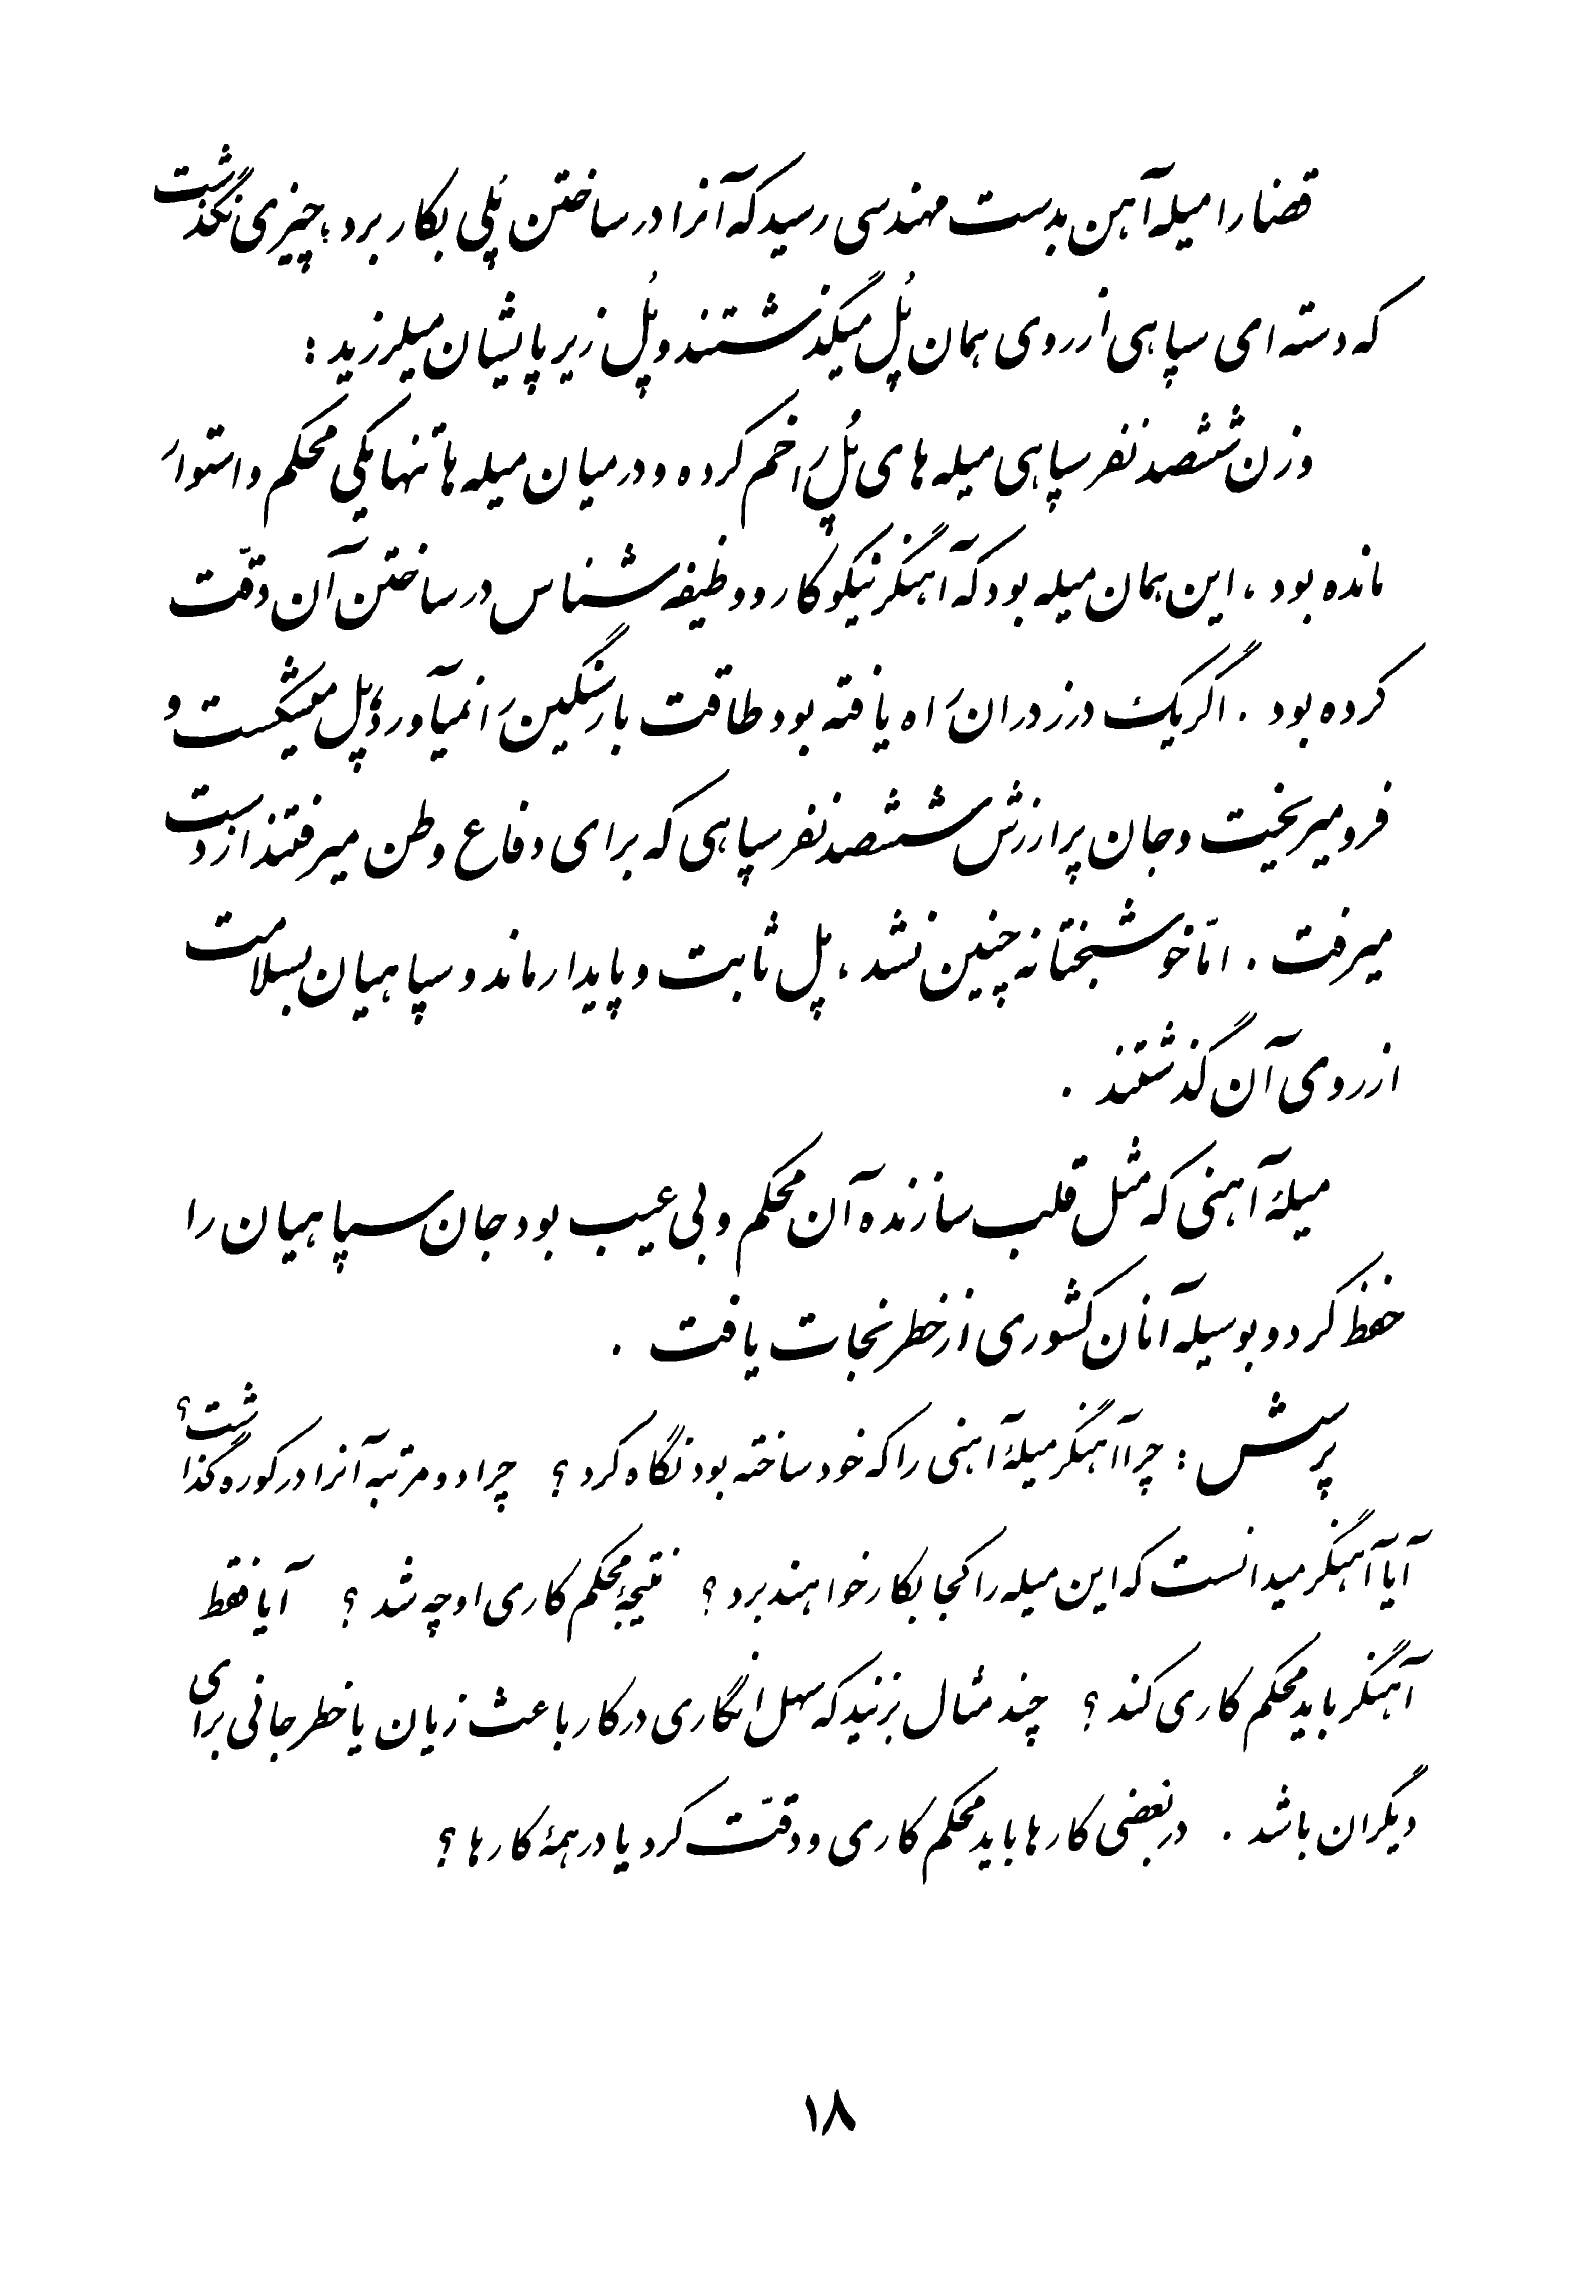 قضا را میله آهن بدست مهندسی رسید که آنرا در ساختن پُلی بکار برد؛ چیزی نگذشت
که دسته ای سپاهی از روی همان پُل میگذشتند و پُل زیر پایشان میلرزید :
وزن ششصد نفر سپاهی میله های پُل را خم کرده و در میان میله ها تنها یکی محکم و استوار
مانده بود ، این همان میله بود که آهنگر نیکوکار و وظیفه شناس در ساختن آن دقّت
کرده بود . اگر یک درز در ان راه یافته بود طاقت بار سنگین را نمیآورد و پُل میشکست و
فرو میریخت و جان پر ارزش ششصد نفر سپاهی که برای دفاع وطن میرفتند از دست
میرفت . امّا خوشبختانه چنین نشد ، پل ثابت و پایدار ماند و سپاهیان بسلامت
از روی آن گذشتند .
میلهٔ آهنی که مثل قلب سازنده آن محکم و بی عیب بود جان سپاهیان را
حفظ کرد و بوسیله آنان کشوری از خطر نجات یافت .
پرسش : چرا آهنگر میلهٔ آهنی را که خود ساخته بود نگاه کرد ؟ چرا دو مرتبه آنرا در کوره گذاشت ؟
آیا آهنگر میدانست که این میله را کجا بکار خواهند برد ؟ نتیجهٔ محکم کاری او چه شد ؟ آیا فقط
آهنگر باید محکم کاری کند ؟ چند مثال بزنید که سهل انگاری در کار باعث زیان یا خطر جانی برای
دیگران باشد . در بعضی کارها باید محکم کاری و دقّت کرد یا در همهٔ کارها ؟
۱۸